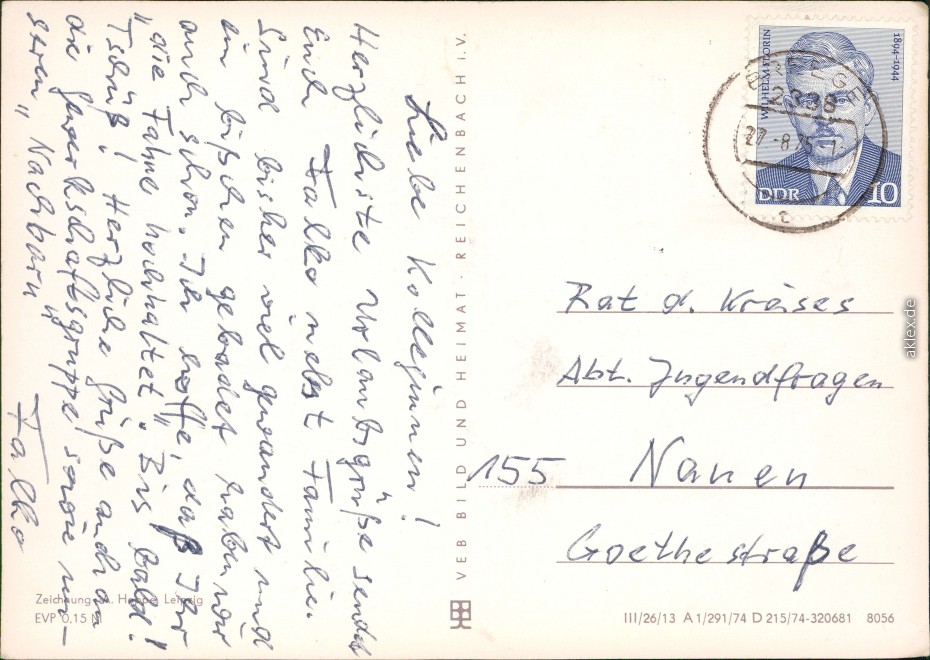 Liebe Kolleginnen!
Herzlichste Urlaubsgrüße sendet
Euch Falko nebst Familie.
Sind bisher viel gewandert und
ein bißchen gebadet haben wir
auch schon. Ich hoffe, daß Ihr
"die Fahne hochhaltet". Bis bald!
Tschüß! Herzliche Grüße auch an
die Gewerkschaftsgruppe sowie un-
seren "Nachbarn"
Falko
Zeichnung: Leipzig
EVP 0,15 M
VEB BILD UND HEIMAT · REICHENBACH i. V.
WILHELM FLORIN
1894-1944
DDR 10
27.-8.75
Rat d. Kreises
Abt. Jugendfragen
155 Nauen
Goethestraße
III/26/13 A 1/291/74 D 215/74-320681 8056
aklex.de